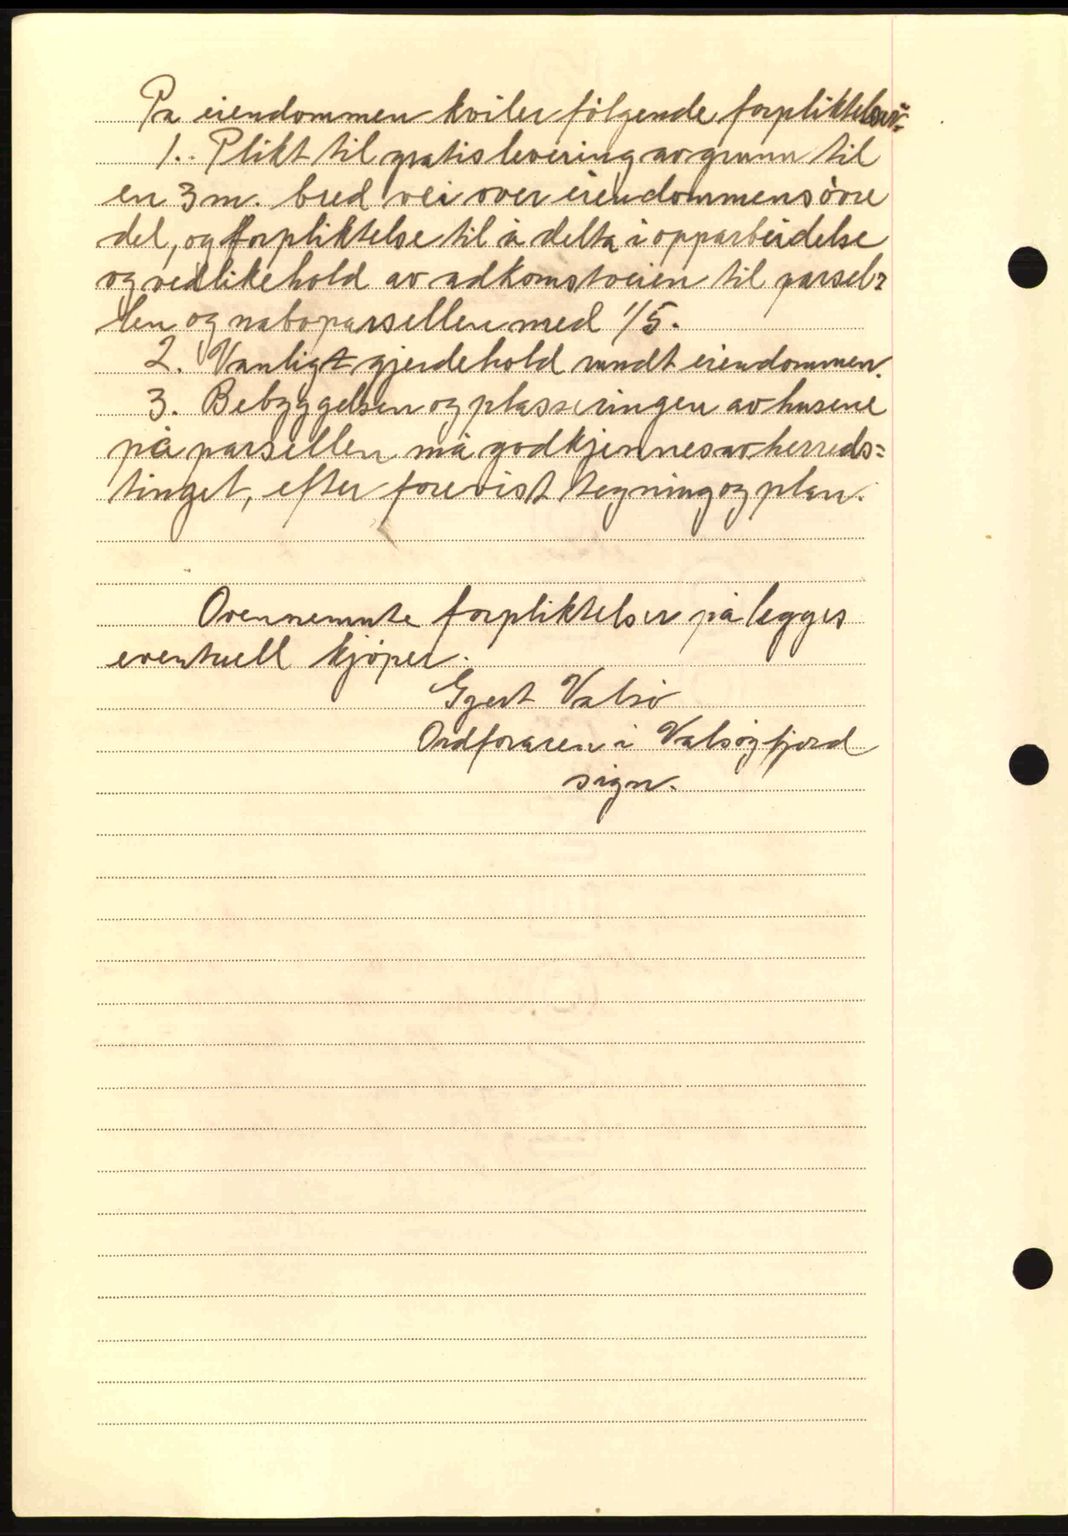 På eiendommen kviler følgende forpliktelser:
1. Plikt til gratis levering av grunn til
en 3 m. bred vei over eiendommens övre
del, og forpliktelse til å delta i opparbeidelse
og vedlikehold av adkomstveien til parsel-
len og naboparsellen med 1/5.
2. Vanligt gjerdehold rundt eiendommen.
3. Bebyggelsen og plasseringen av husene
på parsellen må godkjennes av herreds=
tinget, efter forevist tegning og plan.
Ovennemnte forpliktelser pålegges
eventuell kjöper.
Valsö
Ordføraren i Valsøyfjord
sign.